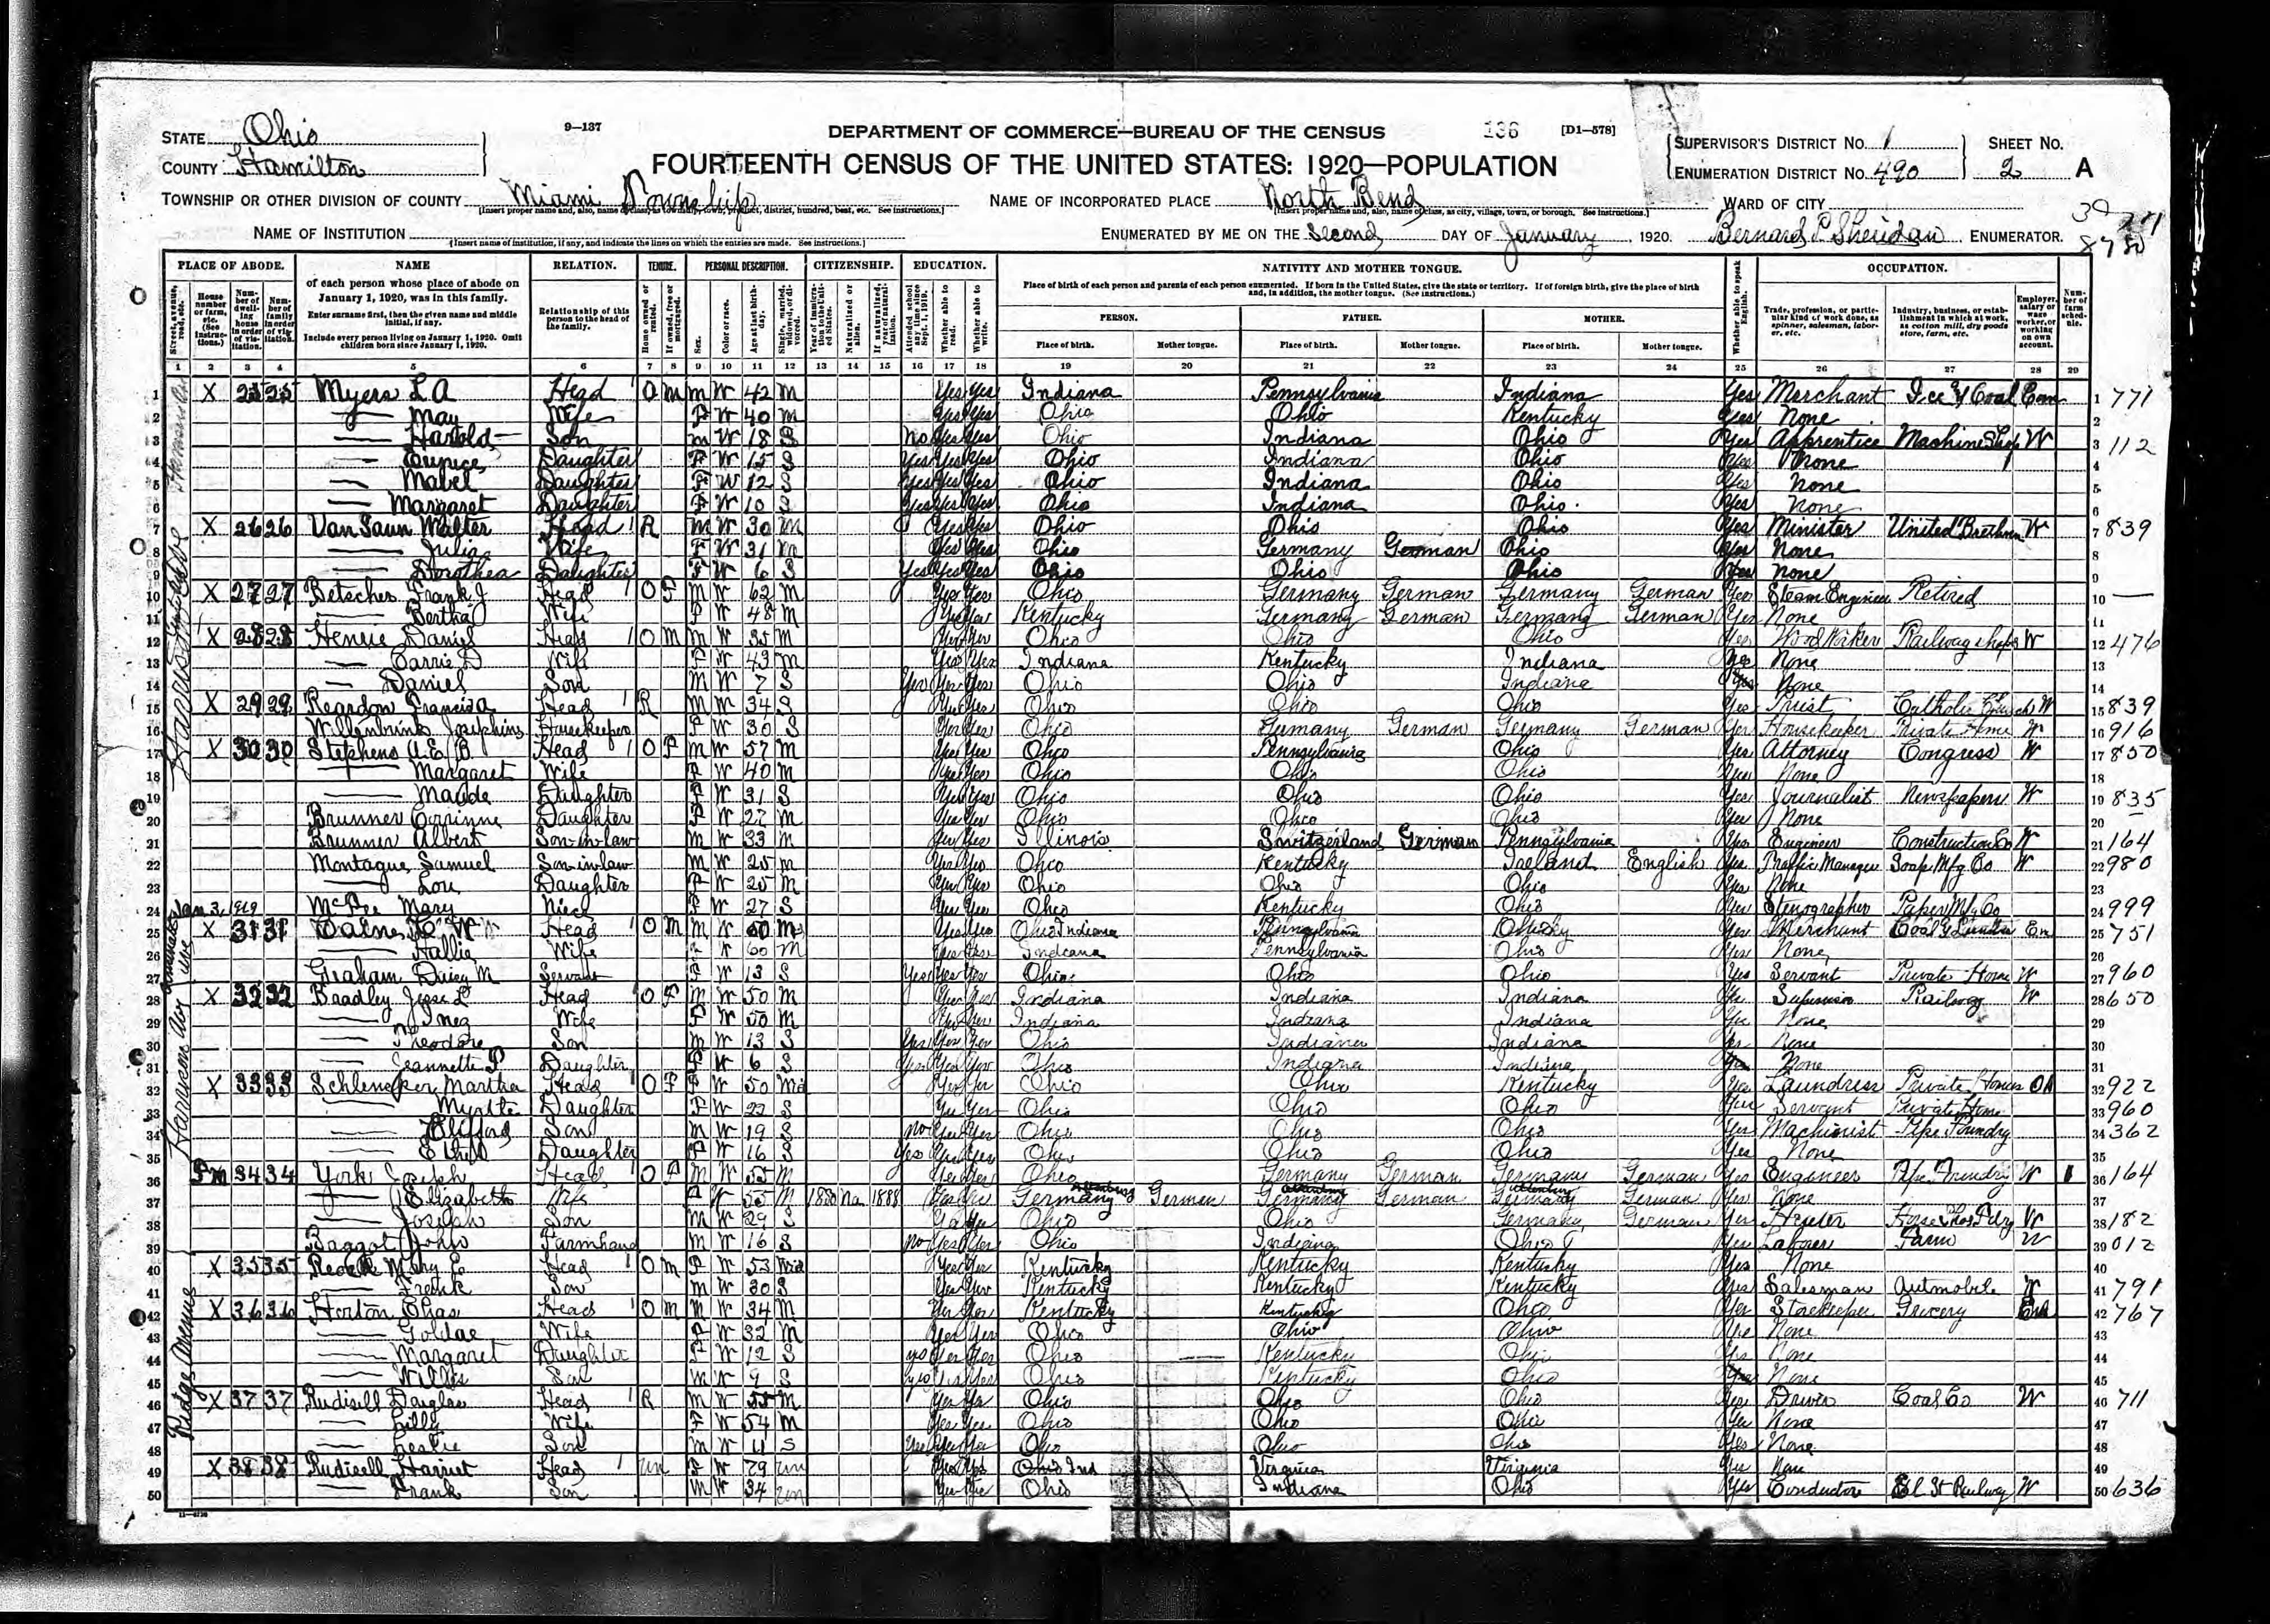 STATE Ohio
9—137
DEPARTMENT OF COMMERCE—BUREAU OF THE CENSUS
136 [D1—578]
SUPERVISOR'S DISTRICT No. 1 SHEET No.
COUNTY Hamilton
FOURTEENTH CENSUS OF THE UNITED STATES: 1920—POPULATION
ENUMERATION DISTRICT No. 490 2 A
TOWNSHIP OR OTHER DIVISION OF COUNTY Miami Township
NAME OF INCORPORATED PLACE North Bend
WARD OF CITY
NAME OF INSTITUTION
[Insert name of institution, if any, and indicate the lines on which the entries are made. See instructions.]
ENUMERATED BY ME ON THE Second DAY OF January, 1920. Bernard P Sheridan ENUMERATOR.
PLACE OF ABODE. NAME RELATION. TENURE. PERSONAL DESCRIPTION. CITIZENSHIP. EDUCATION. NATIVITY AND MOTHER TONGUE. OCCUPATION.
of each person whose place of abode on January 1, 1920, was in this family.
Enter surname first, then the given name and middle initial, if any.
Include every person living on January 1, 1920. Omit children born since January 1, 1920.
Relationship of this person to the head of the family.
Place of birth of each person and parents of each person enumerated. If born in the United States, give the state or territory. If of foreign birth, give the place of birth and, in addition, the mother tongue. (See instructions.)
PERSON. FATHER. MOTHER.
Place of birth. Mother tongue. Place of birth. Mother tongue. Place of birth. Mother tongue.
1 2 3 4 5 6 7 8 9 10 11 12 13 14 15 16 17 18 19 20 21 22 23 24 25 26 27 28 29
1 X 25 25 Myers L A Head O M M W 42 M Yes Yes Indiana Pennsylvania Indiana Yes Merchant Ice & Coal Em 1 771
2 — May Wife F W 40 M Yes Yes Ohio Ohio Kentucky Yes None 2
3 — Harold Son M W 18 S No Yes Yes Ohio Indiana Ohio Yes Apprentice Machine Shop W 3 112
4 — Eunice Daughter F W 15 S Yes Yes Yes Ohio Indiana Ohio Yes None 4
5 — Mabel Daughter F W 12 S Yes Yes Yes Ohio Indiana Ohio Yes None 5
6 — Margaret Daughter F W 10 S Yes Yes Yes Ohio Indiana Ohio Yes None 6
7 X 26 26 Van Saun Walter Head R M W 30 M Yes Yes Ohio Ohio Ohio Yes Minister United Brethren W 7 839
8 — Julia Wife F W 31 M Yes Yes Ohio Germany German Ohio Yes None 8
9 — Dorothea Daughter F W 6 S Yes Yes Yes Ohio Ohio Ohio Yes None 9
10 X 27 27 Betscher Frank J Head O F M W 62 M Yes Yes Ohio Germany German Germany German Yes Steam Engineer Retired 10 —
11 — Bertha Wife F W 48 M Yes Yes Kentucky Germany German Germany German Yes None 11
12 X 28 28 Henrie Daniel Head O M M W 35 M Yes Yes Ohio Ohio Ohio Yes Wood Worker Railway shops W 12 476
13 — Carrie D Wife F W 43 M Yes Yes Indiana Kentucky Indiana Yes None 13
14 — Daniel Son M W 7 S Yes Yes Yes Ohio Ohio Indiana Yes None 14
15 X 29 29 Reardon Francis A Head R M W 34 S Yes Yes Ohio Ohio Ohio Yes Priest Catholic Church W 15 839
16 Willenbrink Josephine Housekeeper F W 30 S Yes Yes Ohio Germany German Germany German Yes Housekeeper Private Home W 16 916
17 X 30 30 Stephens A. E. B. Head O F M W 57 M Yes Yes Ohio Pennsylvania Ohio Yes Attorney Congress W 17 850
18 — Margaret Wife F W 40 M Yes Yes Ohio Ohio Ohio Yes None 18
19 — Maude Daughter F W 31 S Yes Yes Ohio Ohio Ohio Yes Journalist Newspapers W 19 835
20 Brunner Corrinne Daughter F W 27 M Yes Yes Ohio Ohio Ohio Yes None 20
21 Brunner Albert Son-in-law M W 33 M Yes Yes Illinois Switzerland German Pennsylvania Yes Engineer Construction Co W 21 164
22 Montague Samuel Son-in-law M W 25 M Yes Yes Ohio Kentucky Ireland English Yes Traffic Manager Soap Mfg Co W 22 980
23 — Lou Daughter F W 25 M Yes Yes Ohio Ohio Ohio Yes None 23
24 McFee Mary Niece F W 27 S Yes Yes Ohio Kentucky Ohio Yes Stenographer Paper Mfg Co 24 999
25 X 31 31 Head O M M W 60 M Yes Yes Indiana Pennsylvania Yes Merchant Coal & Lumber Em 25 751
26 — Hallie Wife F W 60 M Yes Yes Indiana Pennsylvania Ohio Yes None 26
27 Graham Daisy M Servant F W 13 S Yes Yes Yes Ohio Ohio Ohio Yes Servant Private Home W 27 960
28 X 32 32 Bradley Jesse L Head O F M W 50 M Yes Yes Indiana Indiana Indiana Yes Supervisor Railway W 28 650
29 — Inez Wife F W 50 M Yes Yes Indiana Indiana Indiana Yes None 29
30 — Theodore Son M W 13 S Yes Yes Yes Ohio Indiana Indiana Yes None 30
31 — Jeannette P Daughter F W 6 S Yes Yes Yes Ohio Indiana Indiana None 31
32 X 33 33 Schlenker Martha Head O F F W 50 Wd Yes Yes Ohio Ohio Kentucky Yes Laundress Private Homes OA 32 922
33 — Myrtle Daughter F W 22 S Yes Yes Ohio Ohio Ohio Yes Servant Private Home 33 960
34 — Clifford Son M W 19 S No Yes Yes Ohio Ohio Ohio Yes Machinist Pipe Foundry 34 362
35 — Ethel Daughter F W 16 S Yes Yes Yes Ohio Ohio Ohio Yes None 35
36 Fm 34 34 York Joseph Head O F M W 55 M Yes Yes Ohio Germany German Germany German Yes Engineer Pipe Foundry W 1 36 164
37 — Elizabeth Wife F W 55 M 1880 Na 1888 Yes Yes Germany German Germany German Germany German Yes None 37
38 — Joseph Son M W 29 S Yes Yes Ohio Ohio Germany German Yes W 38 182
39 Baggot John Farmhand M W 16 S No Yes Yes Ohio Indiana Ohio Yes Laborer Farm W 39 012
40 X 35 35 Mary E Head O M F W 53 Wd Yes Yes Kentucky Kentucky Kentucky Yes None 40
41 — Frank Son M W 30 S Yes Yes Kentucky Kentucky Kentucky Yes Salesman Automobile W 41 791
42 X 36 36 Horton Chas Head O M M W 34 M Yes Yes Kentucky Kentucky Ohio Yes Storekeeper Grocery 42 767
43 — Goldae Wife F W 32 M Yes Yes Ohio Ohio Ohio Yes None 43
44 — Margaret Daughter F W 12 S Yes Yes Yes Ohio Kentucky Ohio Yes None 44
45 — Willis Son M W 9 S Yes Yes Yes Ohio Kentucky Ohio None 45
46 X 37 37 Rudisell Douglas Head R M W 55 M Yes Yes Ohio Ohio Ohio Yes Driver Coal Co W 46 711
47 — Lilly Wife F W 54 M Yes Yes Ohio Ohio Ohio Yes None 47
48 — Leslie Son M W 11 S Yes Yes Yes Ohio Ohio Ohio Yes None 48
49 X 38 38 Rudisell Harriet Head Un F W 79 Un Yes Yes Ind Virginia Virginia Yes None 49
50 — Frank Son M W 34 Un Yes Yes Ohio Indiana Ohio Yes Conductor El St Railway W 50 636
Ridge Avenue